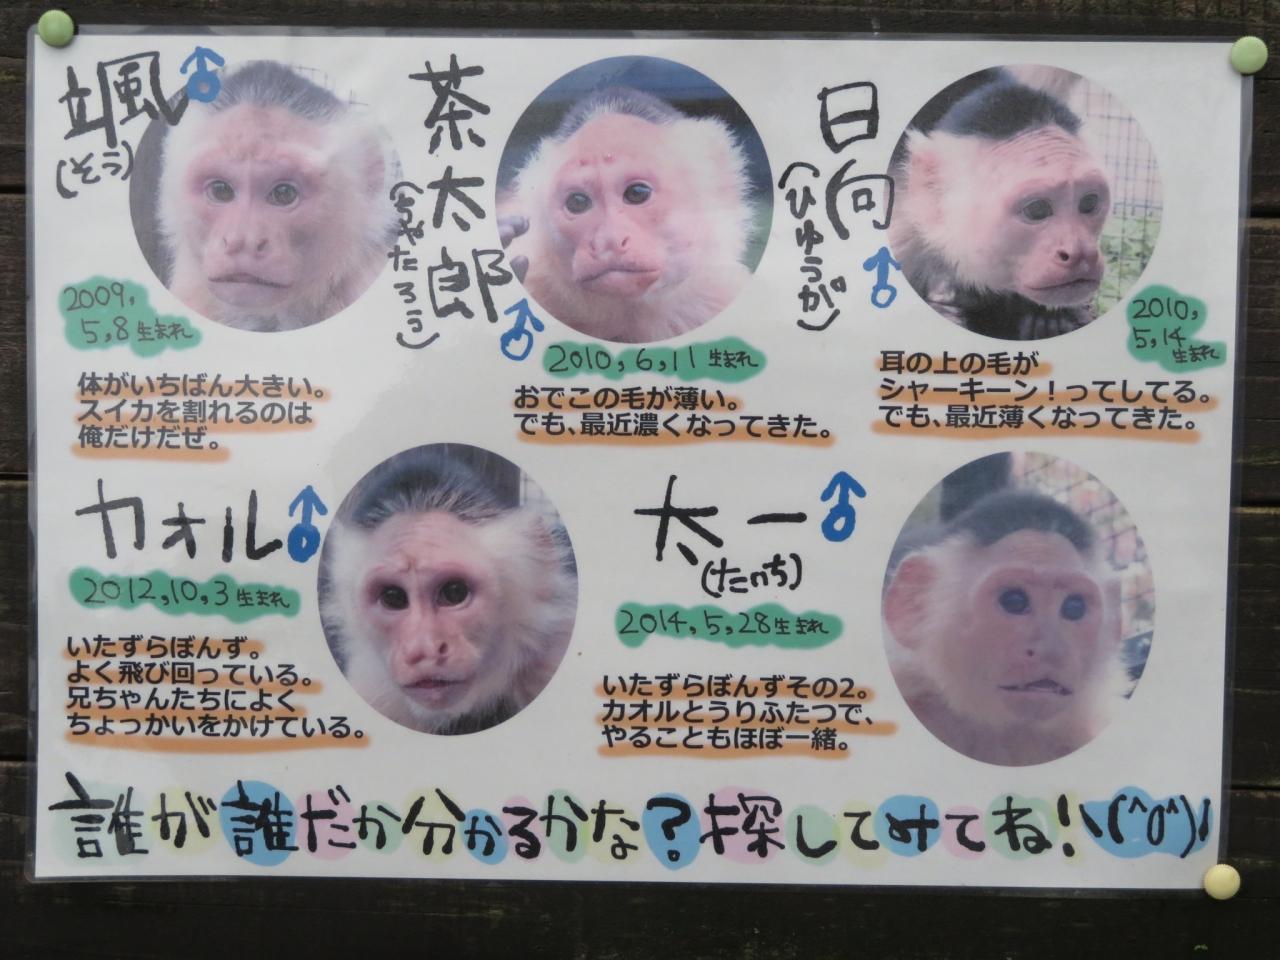 颯♂
(そう)
2009,
5,8生まれ
体がいちばん大きい。
スイカを割れるのは
俺だけだぜ。
茶太郎♂
(ちゃたろう)
2010,6,11生まれ
おでこの毛が薄い。
でも、最近濃くなってきた。
日向♂
(ひゅうが)
2010,
5,14
生まれ
耳の上の毛が
シャーキーン！ってしてる。
でも、最近薄くなってきた。
カオル♂
2012,10,3生まれ
いたずらぼんず。
よく飛び回っている。
兄ちゃんたちによく
ちょっかいをかけている。
太一♂
(たいち)
2014,5,28生まれ
いたずらぼんずその2。
カオルとうりふたつで、
やることもほぼ一緒。
誰が誰だか分かるかな？探してみてね！\(^o^)!